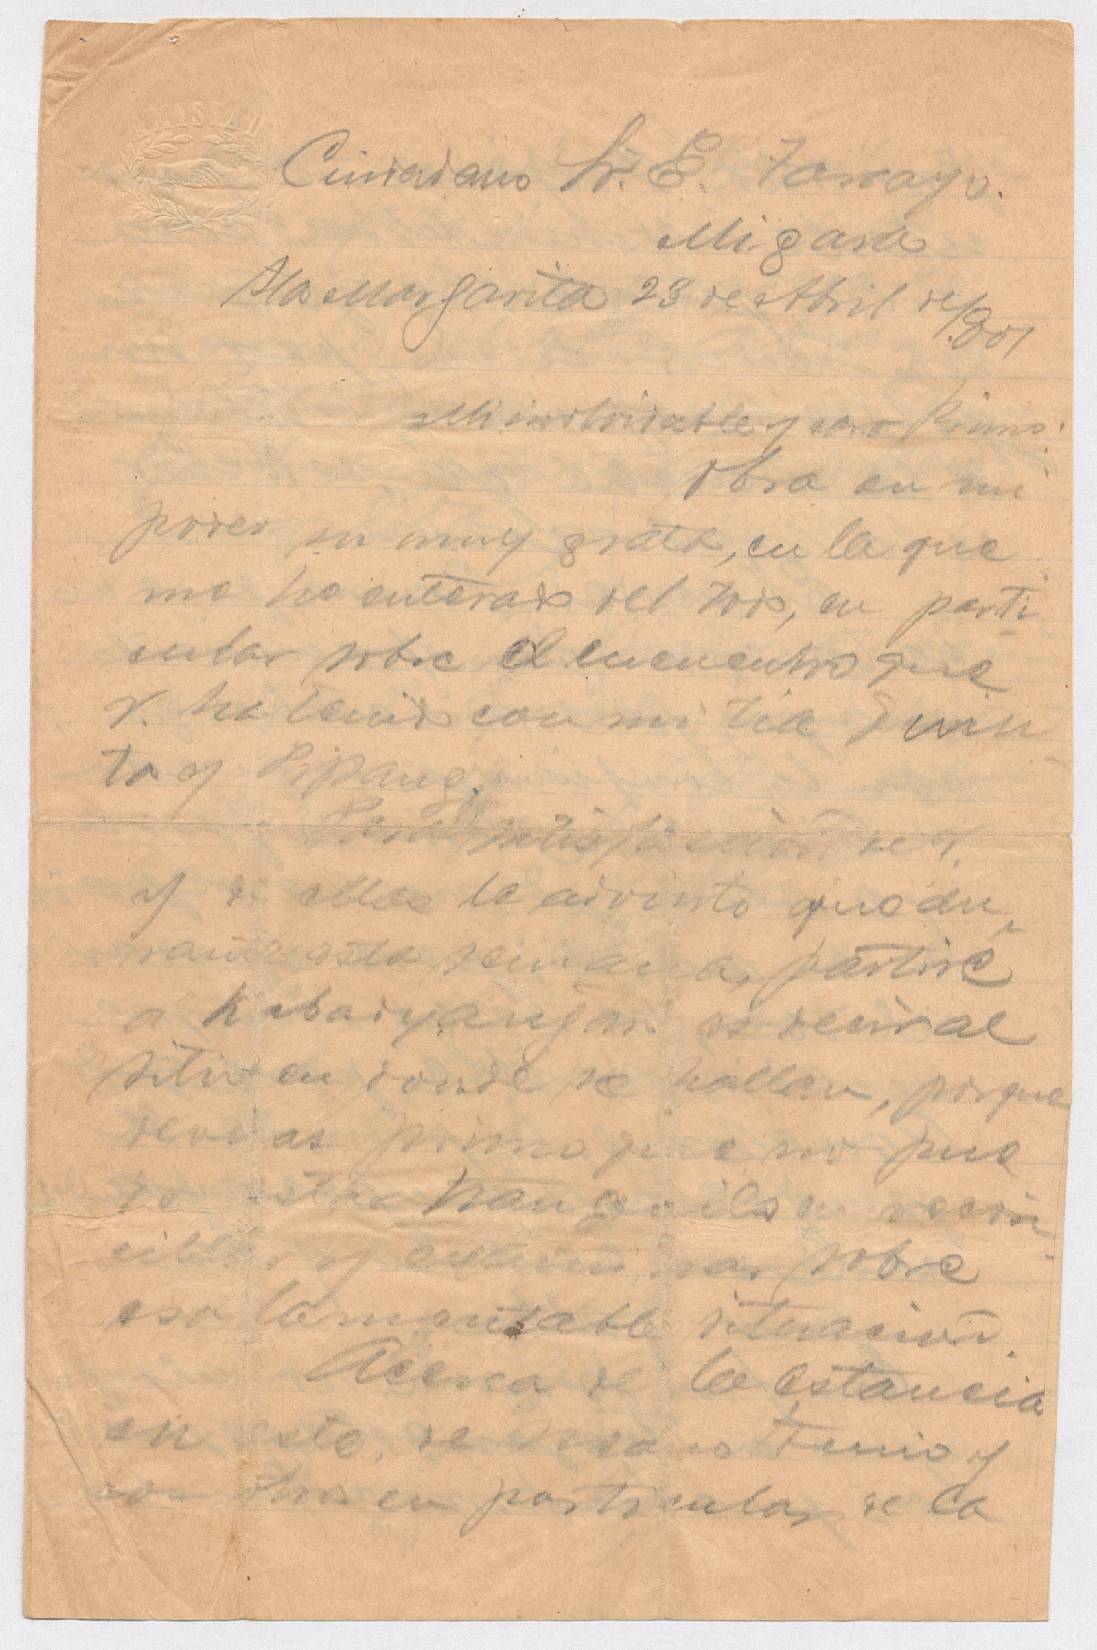 AMISTAD
Ciudadano Sr. E. Tamayo.
Migara
Sta Margarita 23 de Abril de/901
Mi inolvidable y caro Primo:
Obra en mi
poder su muy grata, en la que
me he enterado del todo, en parti
cular sobre el encuentro que
V. ha tenido con mi tia
ta y Sipang.
Para satisfacción de V.
y de ellas le advierto que du
rante esta semana, partiré
a es decir al
sitio en donde se hallan, porque
de veras primo que no pue
do estar tranquilo
y sobre
esa lamentable situación.
Acerca de la estancia
en esta, de y
con otros en particular de la